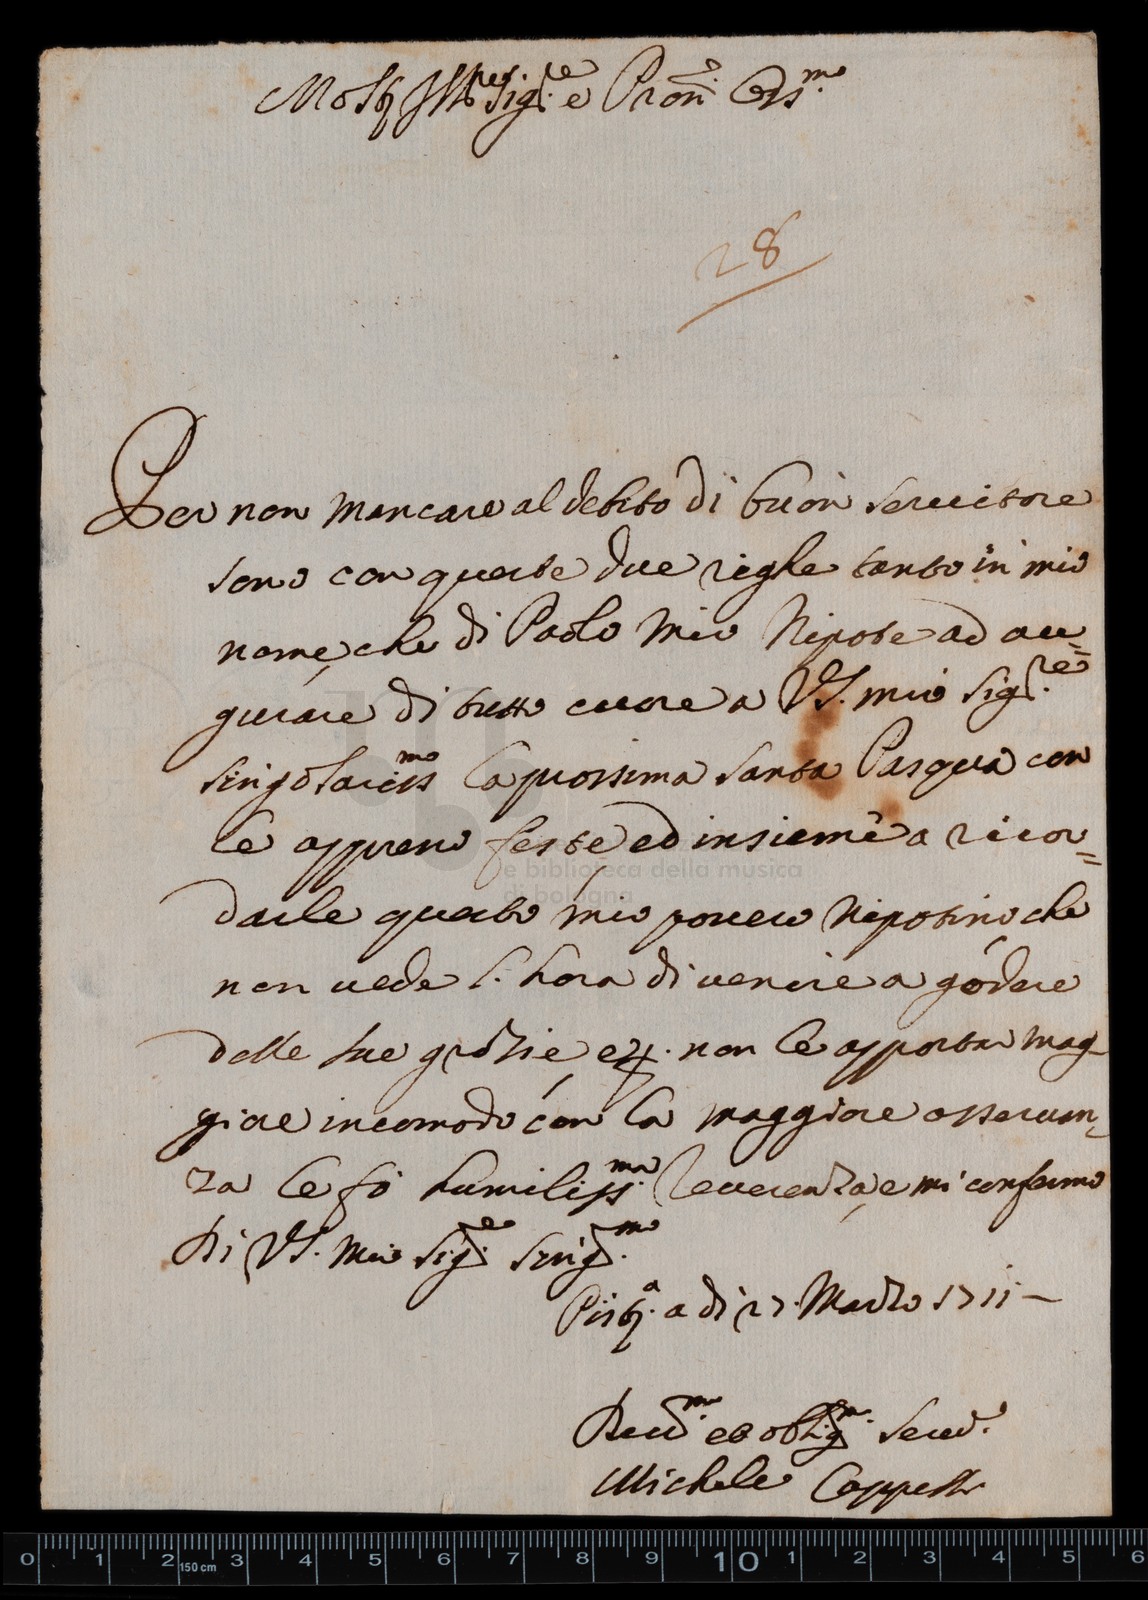 Molt Ill.re Sig.re e Pron. Oss.mo
28
Per non mancare al debito di buon seruitore
sono con queste due righe tanto in mio
nome, che di Paolo mio Nipote ad au=
gurare di tutto cuore a VS. mio Sig.re
singolariss.mo la prossima santa Pasqua con
le appreso feste, ed insieme a ricor=
darle questo mio pouero Nipotino che
non uede l'hora di uenire a godere
delle sue grazie, e non le apporta mag
giore incomodo, con la maggiore osseruan=
za le fò humiliss.ma reuerenza, e mi confermo
Di VS. Mio Sig.re Sing.mo
Pist.a a di 27. Marzo 1711
Deu.mo et oblig.mo Seru.e
Michele Cappelli
e biblioteca della musica
di bologna
0 1 2 150 cm 3 4 5 6 7 8 9 10 1 2 3 4 5 6